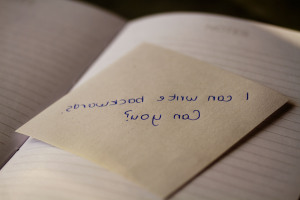 I can write backwards.
Can you?